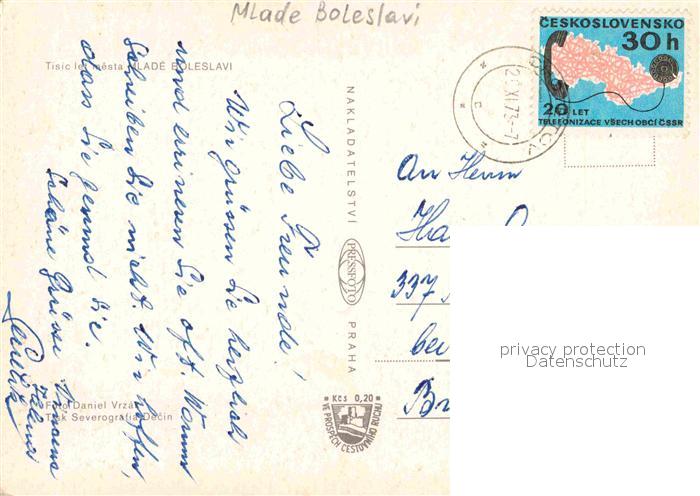 Mlade Boleslavi
Tisíc let města MLADÉ BOLESLAVI
Liebe Freunde!
Wir grüssen Sie herzlich
und errineren Sie oft. Warum
schreiben Sie nicht. Wir hoffen,
dass Sie gesund sie.
Schöne Grüsse
Foto Daniel Vrzák
Tisk Severografia Děčín
NAKLADATELSTVÍ
PRESSFOTO
PRAHA
Kčs 0,20
VE PROSPĚCH CESTOVNÍHO RUCHU
ČESKOSLOVENSKO
30h
20 LET
TELEFONIZACE VŠECH OBCÍ ČSSR
XI.73-7
An Herrn
Ha
337
bei
Br
privacy protection
Datenschutz